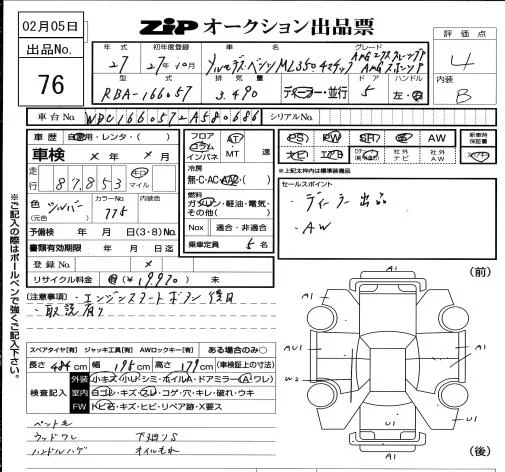 02月05日
ZiP オークション出品票
評価点
4
内装
B
出品No.
76
年式 初年度登録 車名 グレード
27 27年10月 メルセデス・ベンツML350 4マチック AMGエクスクルーシブP
AMGスポーツP
型式 排気量 ドア ハンドル
RBA-166057 3,490 ディーラー・並行 5 左・右
車台No. WDC1660572A580686 シリアルNo.
車歴 自家用・レンタ・( )
車検 × 年 × 月
走行 87,853 キロ マイル
色(元色) シルバー カラーNo. 775 内装色
予備検 年 月 日(3・8)No.
書類有効期限 年 月 日迄
登録No. ×
リサイクル料金 有(¥19,970) 未
フロア コラム インパネ AT MT 速
冷房 無・C・AC・AAC・( )
燃料 ガソリン・軽油・電気・その他( )
Nox 適合・非適合
乗車定員 5名
PS PW SR 革 AW 新車時保証書
ナビ エアB Dナビ 社外ナビ 社外AW
※上記太枠内は標準装備品
セールスポイント
・ディーラー出品
・AW
[注意事項]・エンジンスタートボタン後日
・取説有り
スペアタイヤ[有] ジャッキ工具[有] AWロックキー[有] ある場合のみ○
長さ 484cm 幅 195cm 高さ 179cm (車検証上の寸法)
検査記入
外装 小キズ・小ヘコ・シミ・ホイルA・ドアミラー(A・ワレ)
室内 ヨゴレ・キズ・スレ・コゲ・穴・キレ・破れ・ウキ
FW トビ石・キズ・ヒビ・リペア跡・X要ス
ペット毛
ウッドワレ 下廻りS
ハンドルハゲ オイルモレ
※ご記入の際はボールペンで強くご記入下さい。
(前)
A1
A1
A1
AU1
A1
W2
U1
U1
A1
(後)